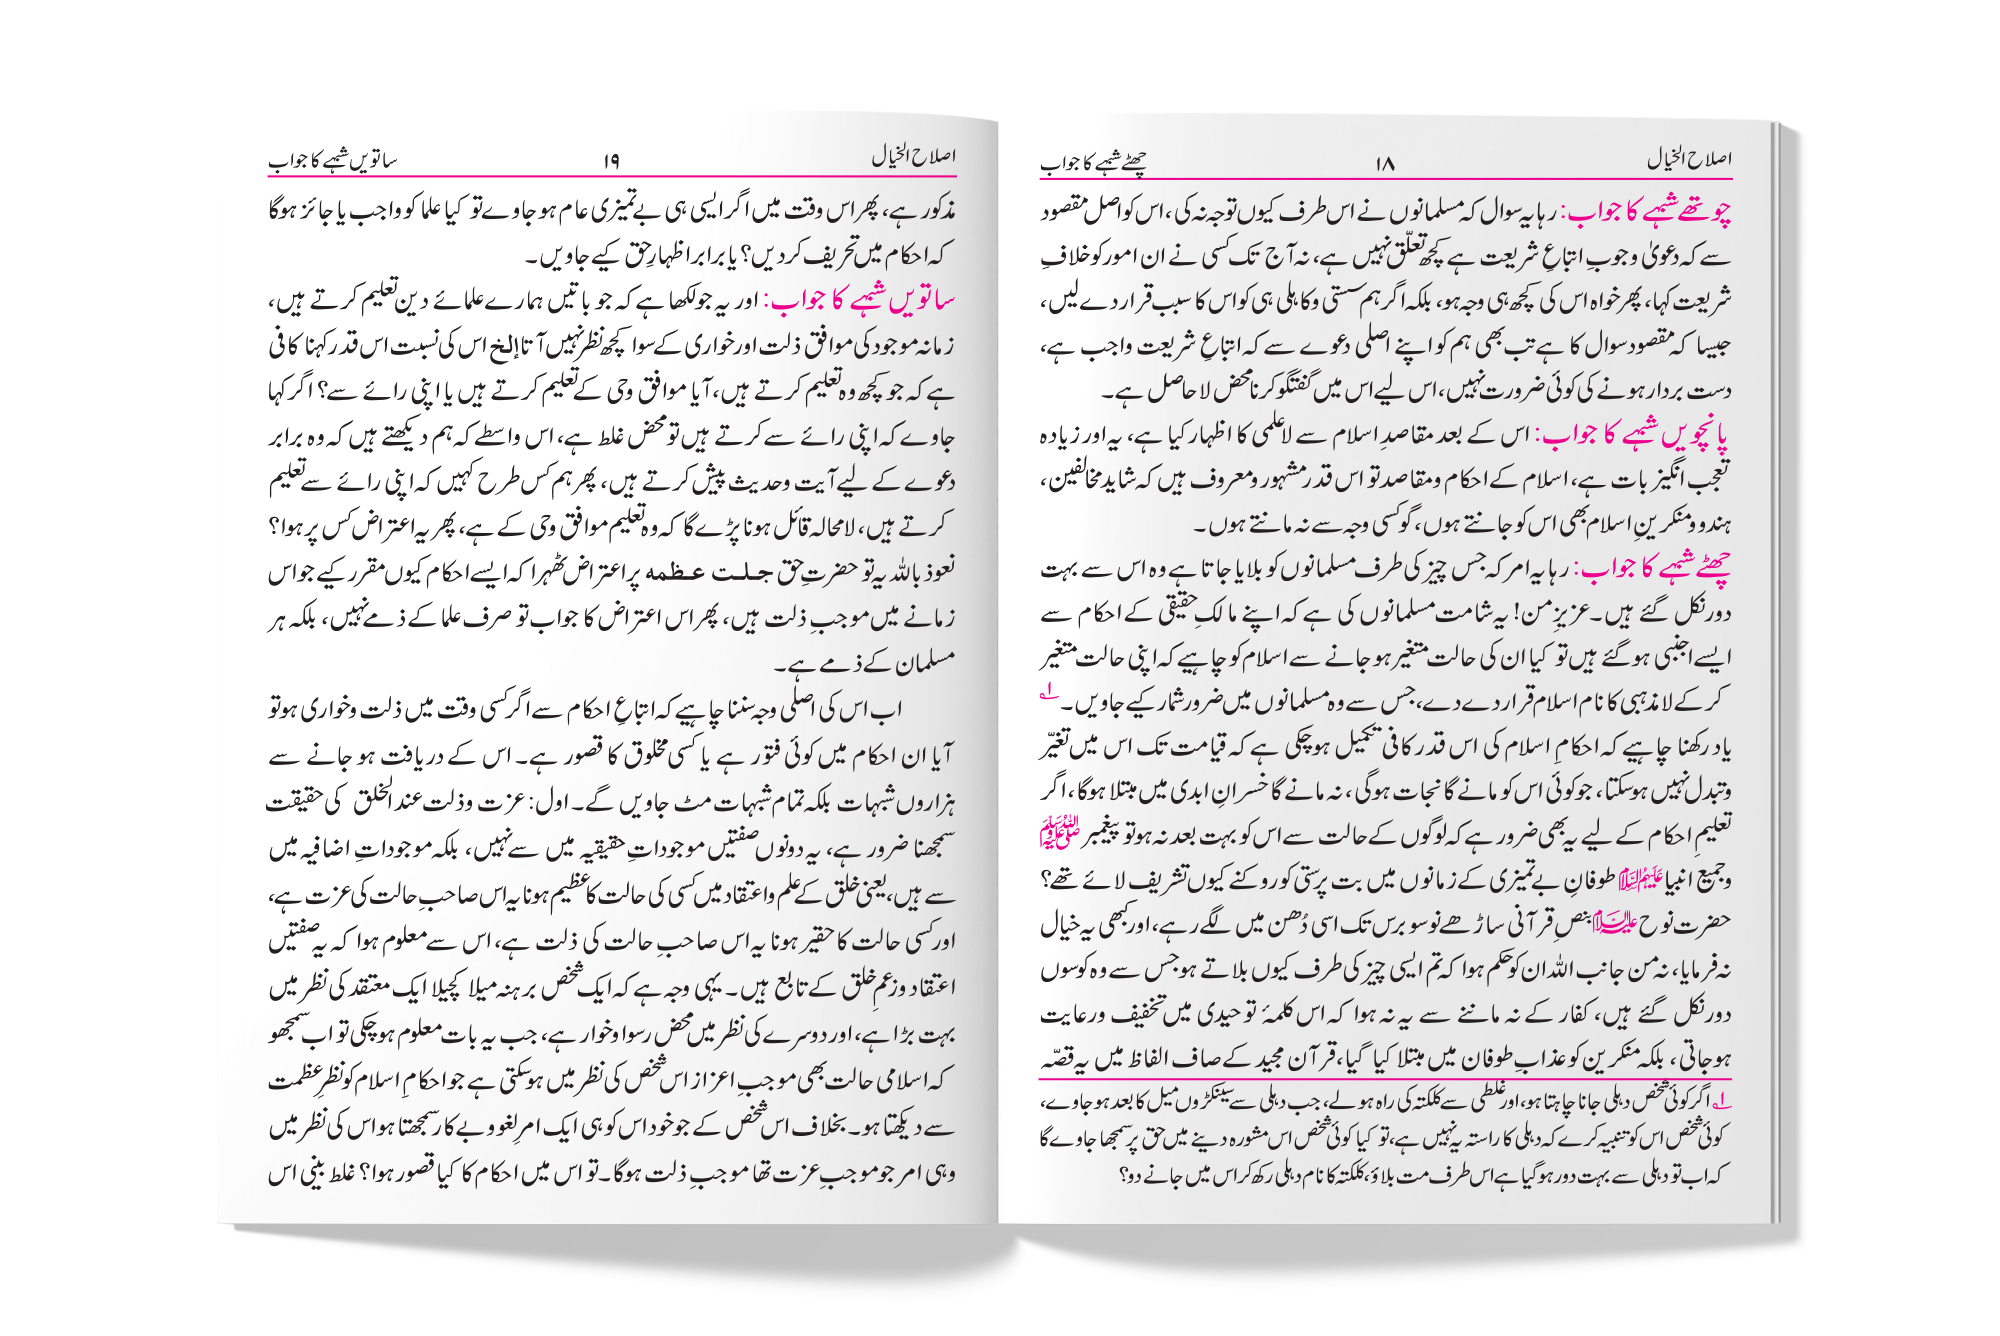 اصلاح الخیال ۱۸ چھٹے شبہے کا جواب
چوتھے شبہے کا جواب: رہا یہ سوال کہ مسلمانوں نے اس طرف کیوں توجہ نہ کی، اس کو اصل مقصود
سے کہ دعویٰ وجوبِ اتباعِ شریعت ہے کچھ تعلّق نہیں ہے، نہ آج تک کسی نے ان امور کو خلافِ
شریعت کہا، پھر خواہ اس کی کچھ ہی وجہ ہو، بلکہ اگر ہم سستی وکاہلی ہی کو اس کا سبب قرار دے لیں،
جیسا کہ مقصود سوال کا ہے تب بھی ہم کو اپنے اصلی دعوے سے کہ اتباعِ شریعت واجب ہے،
دست بردار ہونے کی کوئی ضرورت نہیں، اس لیے اس میں گفتگو کرنا محض لا حاصل ہے۔
پانچویں شبہے کا جواب: اس کے بعد مقاصدِ اسلام سے لاعلمی کا اظہار کیا ہے، یہ اور زیادہ
تعجب انگیز بات ہے، اسلام کے احکام ومقاصد تو اس قدر مشہور ومعروف ہیں کہ شاید مخالفین،
ہندو ومنکرینِ اسلام بھی اس کو جانتے ہوں، گو کسی وجہ سے نہ مانتے ہوں۔
چھٹے شبہے کا جواب: رہا یہ امر کہ جس چیز کی طرف مسلمانوں کو بلایا جاتا ہے وہ اس سے بہت
دور نکل گئے ہیں۔ عزیزِ من! یہ شامت مسلمانوں کی ہے کہ اپنے مالکِ حقیقی کے احکام سے
ایسے اجنبی ہوگئے ہیں تو کیا ان کی حالت متغیر ہو جانے سے اسلام کو چاہیے کہ اپنی حالت متغیر
کر کے لا مذہبی کا نام اسلام قرار دے دے، جس سے وہ مسلمانوں میں ضرور شمار کیے جاویں۔ ۱؎
یاد رکھنا چاہیے کہ احکامِ اسلام کی اس قدر کافی تکمیل ہوچکی ہے کہ قیامت تک اس میں تغیّر
وتبدل نہیں ہوسکتا، جو کوئی اس کو مانے گا نجات ہوگی، نہ مانے گا خسرانِ ابدی میں مبتلا ہوگا، اگر
تعلیمِ احکام کے لیے یہ بھی ضرور ہے کہ لوگوں کے حالت سے اس کو بہت بعد نہ ہو تو پیغمبر ﷺ
وجمیع انبیا علیہم السلام طوفانِ بے تمیزی کے زمانوں میں بت پرستی کو روکنے کیوں تشریف لائے تھے؟
حضرت نوح علیہ السلام بنصِ قرآنی ساڑھے نو سو برس تک اسی دُھن میں لگے رہے، اور کبھی یہ خیال
نہ فرمایا، نہ من جانب اللہ ان کو حکم ہوا کہ تم ایسی چیز کی طرف کیوں بلاتے ہو جس سے وہ کوسوں
دور نکل گئے ہیں، کفار کے نہ ماننے سے یہ نہ ہوا کہ اس کلمۂ توحیدی میں تخفیف ورعایت
ہوجاتی، بلکہ منکرین کو عذابِ طوفان میں مبتلا کیا گیا، قرآن مجید کے صاف الفاظ میں یہ قصّہ
۱؎ اگر کوئی شخص دہلی جانا چاہتا ہو، اور غلطی سے کلکتہ کی راہ ہولے، جب دہلی سے سینکڑوں میل کا بعد ہو جاوے،
کوئی شخص اس کو تنبیہ کرے کہ دہلی کا راستہ یہ نہیں ہے، تو کیا کوئی شخص اس مشورہ دینے میں حق پر سمجھا جاوے گا
کہ اب تو دہلی سے بہت دور ہوگیا ہے اس طرف مت بلاؤ، کلکتہ کا نام دہلی رکھ کر اس میں جانے دو؟
اصلاح الخیال ۱۹ ساتویں شبہے کا جواب
مذکور ہے، پھر اس وقت میں اگر ایسی ہی بے تمیزی عام ہو جاوے تو کیا علما کو واجب یا جائز ہوگا
کہ احکام میں تحریف کردیں؟ یا برابر اظہارِ حق کیے جاویں۔
ساتویں شبہے کا جواب: اور یہ جو لکھا ہے کہ جو باتیں ہمارے علمائے دین تعلیم کرتے ہیں،
زمانہ موجود کی موافق ذلت اور خواری کے سوا کچھ نظر نہیں آتا إلخ اس کی نسبت اس قدر کہنا کافی
ہے کہ جو کچھ وہ تعلیم کرتے ہیں، آیا موافق وحی کے تعلیم کرتے ہیں یا اپنی رائے سے؟ اگر کہا
جاوے کہ اپنی رائے سے کرتے ہیں تو محض غلط ہے، اس واسطے کہ ہم دیکھتے ہیں کہ وہ برابر
دعوے کے لیے آیت وحدیث پیش کرتے ہیں، پھر ہم کس طرح کہیں کہ اپنی رائے سے تعلیم
کرتے ہیں، لامحالہ قائل ہونا پڑے گا کہ وہ تعلیم موافق وحی کے ہے، پھر یہ اعتراض کس پر ہوا؟
نعوذ باللہ یہ تو حضرتِ حق جلت عظمه پر اعتراض ٹھہرا کہ ایسے احکام کیوں مقرر کیے جو اس
زمانے میں موجبِ ذلت ہیں، پھر اس اعتراض کا جواب تو صرف علما کے ذمے نہیں، بلکہ ہر
مسلمان کے ذمے ہے۔
اب اس کی اصلی وجہ سننا چاہیے کہ اتباعِ احکام سے اگر کسی وقت میں ذلت وخواری ہو تو
آیا ان احکام میں کوئی فتور ہے یا کسی مخلوق کا قصور ہے۔ اس کے دریافت ہو جانے سے
ہزاروں شبہات بلکہ تمام شبہات مٹ جاویں گے۔ اول: عزت وذلت عند الخلق کی حقیقت
سمجھنا ضرور ہے، یہ دونوں صفتیں موجوداتِ حقیقیہ میں سے نہیں، بلکہ موجوداتِ اضافیہ میں
سے ہیں، یعنی خلق کے علم واعتقاد میں کسی کی حالت کا عظیم ہونا یہ اس صاحبِ حالت کی عزت ہے،
اور کسی حالت کا حقیر ہونا یہ اس صاحبِ حالت کی ذلت ہے، اس سے معلوم ہوا کہ یہ صفتیں
اعتقاد وزعمِ خلق کے تابع ہیں۔ یہی وجہ ہے کہ ایک شخص برہنہ میلا کچیلا ایک معتقد کی نظر میں
بہت بڑا ہے، اور دوسرے کی نظر میں محض رسوا وخوار ہے، جب یہ بات معلوم ہوچکی تو اب سمجھو
کہ اسلامی حالت بھی موجبِ اعزاز اس شخص کی نظر میں ہوسکتی ہے جو احکامِ اسلام کو نظرِ عظمت
سے دیکھتا ہو۔ بخلاف اس شخص کے جو خود اس کو ہی ایک امرِ لغو وبے کار سمجھتا ہو اس کی نظر میں
وہی امر جو موجبِ عزت تھا موجبِ ذلت ہوگا۔ تو اس میں احکام کا کیا قصور ہوا؟ غلط بینی اس